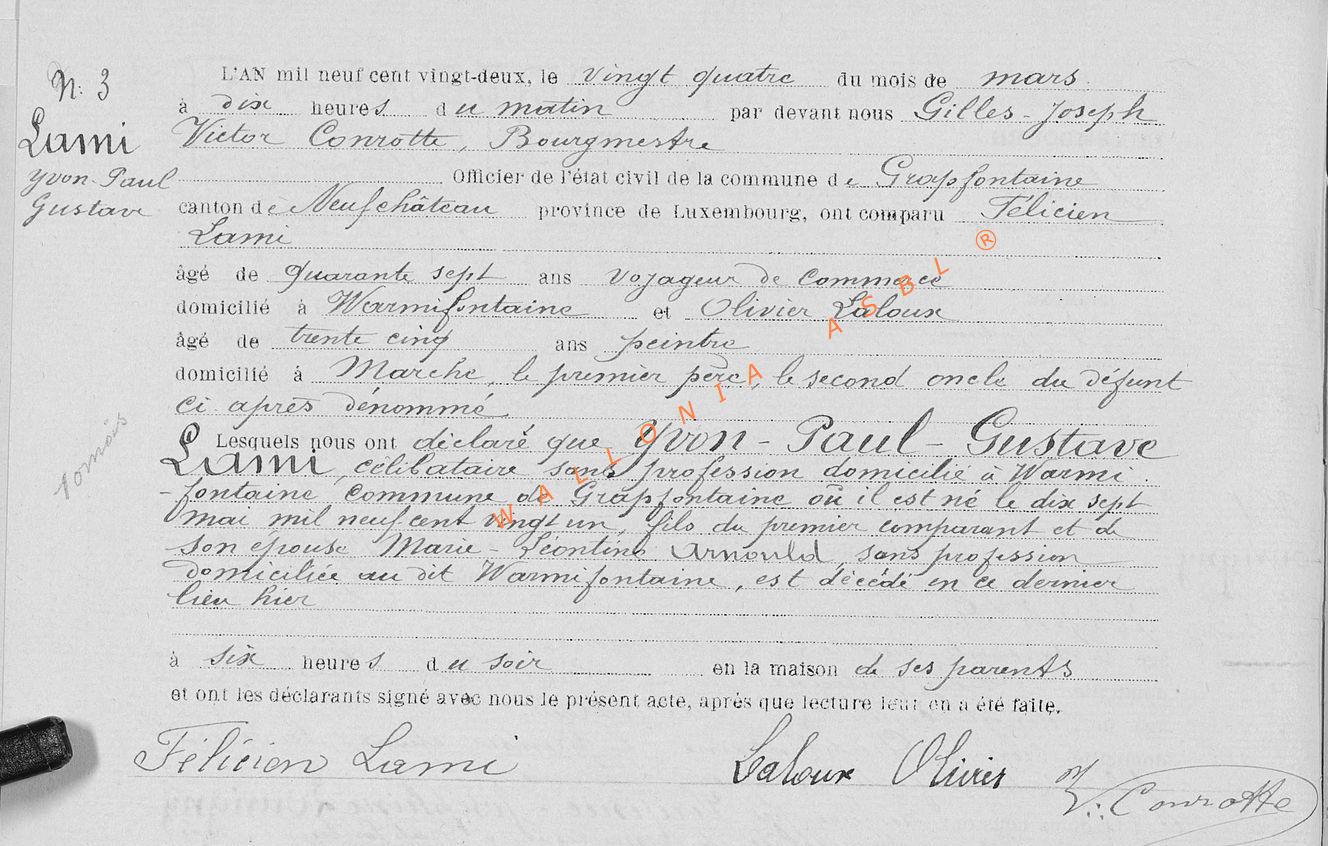 N: 3
Lami
Yvon-Paul
Gustave
10 mois
L'AN mil neuf cent vingt-deux, le vingt quatre du mois de mars
à dix heures du matin par devant nous Gilles-Joseph
Victor Conrotte, Bourgmestre
Officier de l'état civil de la commune de Grapfontaine
canton de Neufchâteau province de Luxembourg, ont comparu Félicien
Lami
âgé de quarante sept ans voyageur de commerce
domicilié à Warmifontaine et Olivier Laloux
âgé de trente cinq ans peintre
domicilié à Marche, le premier père, le second oncle du défunt
ci après dénommé
Lesquels nous ont déclaré que Yvon-Paul-Gustave
Lami, célibataire sans profession domicilié à Warmi
-fontaine, commune de Grapfontaine où il est né le dix sept
mai mil neuf cent vingt un, fils du premier comparant et de
son épouse Marie-Léontine Arnould, sans profession
domiciliée au dit Warmifontaine, est décédé en ce dernier
lieu hier
à six heures du soir en la maison de ses parents
et ont les déclarants signé avec nous le présent acte, après que lecture leur en a été faite.
Félicien Lami Laloux Olivier V. Conrotte
WALLONIA ASBL ®